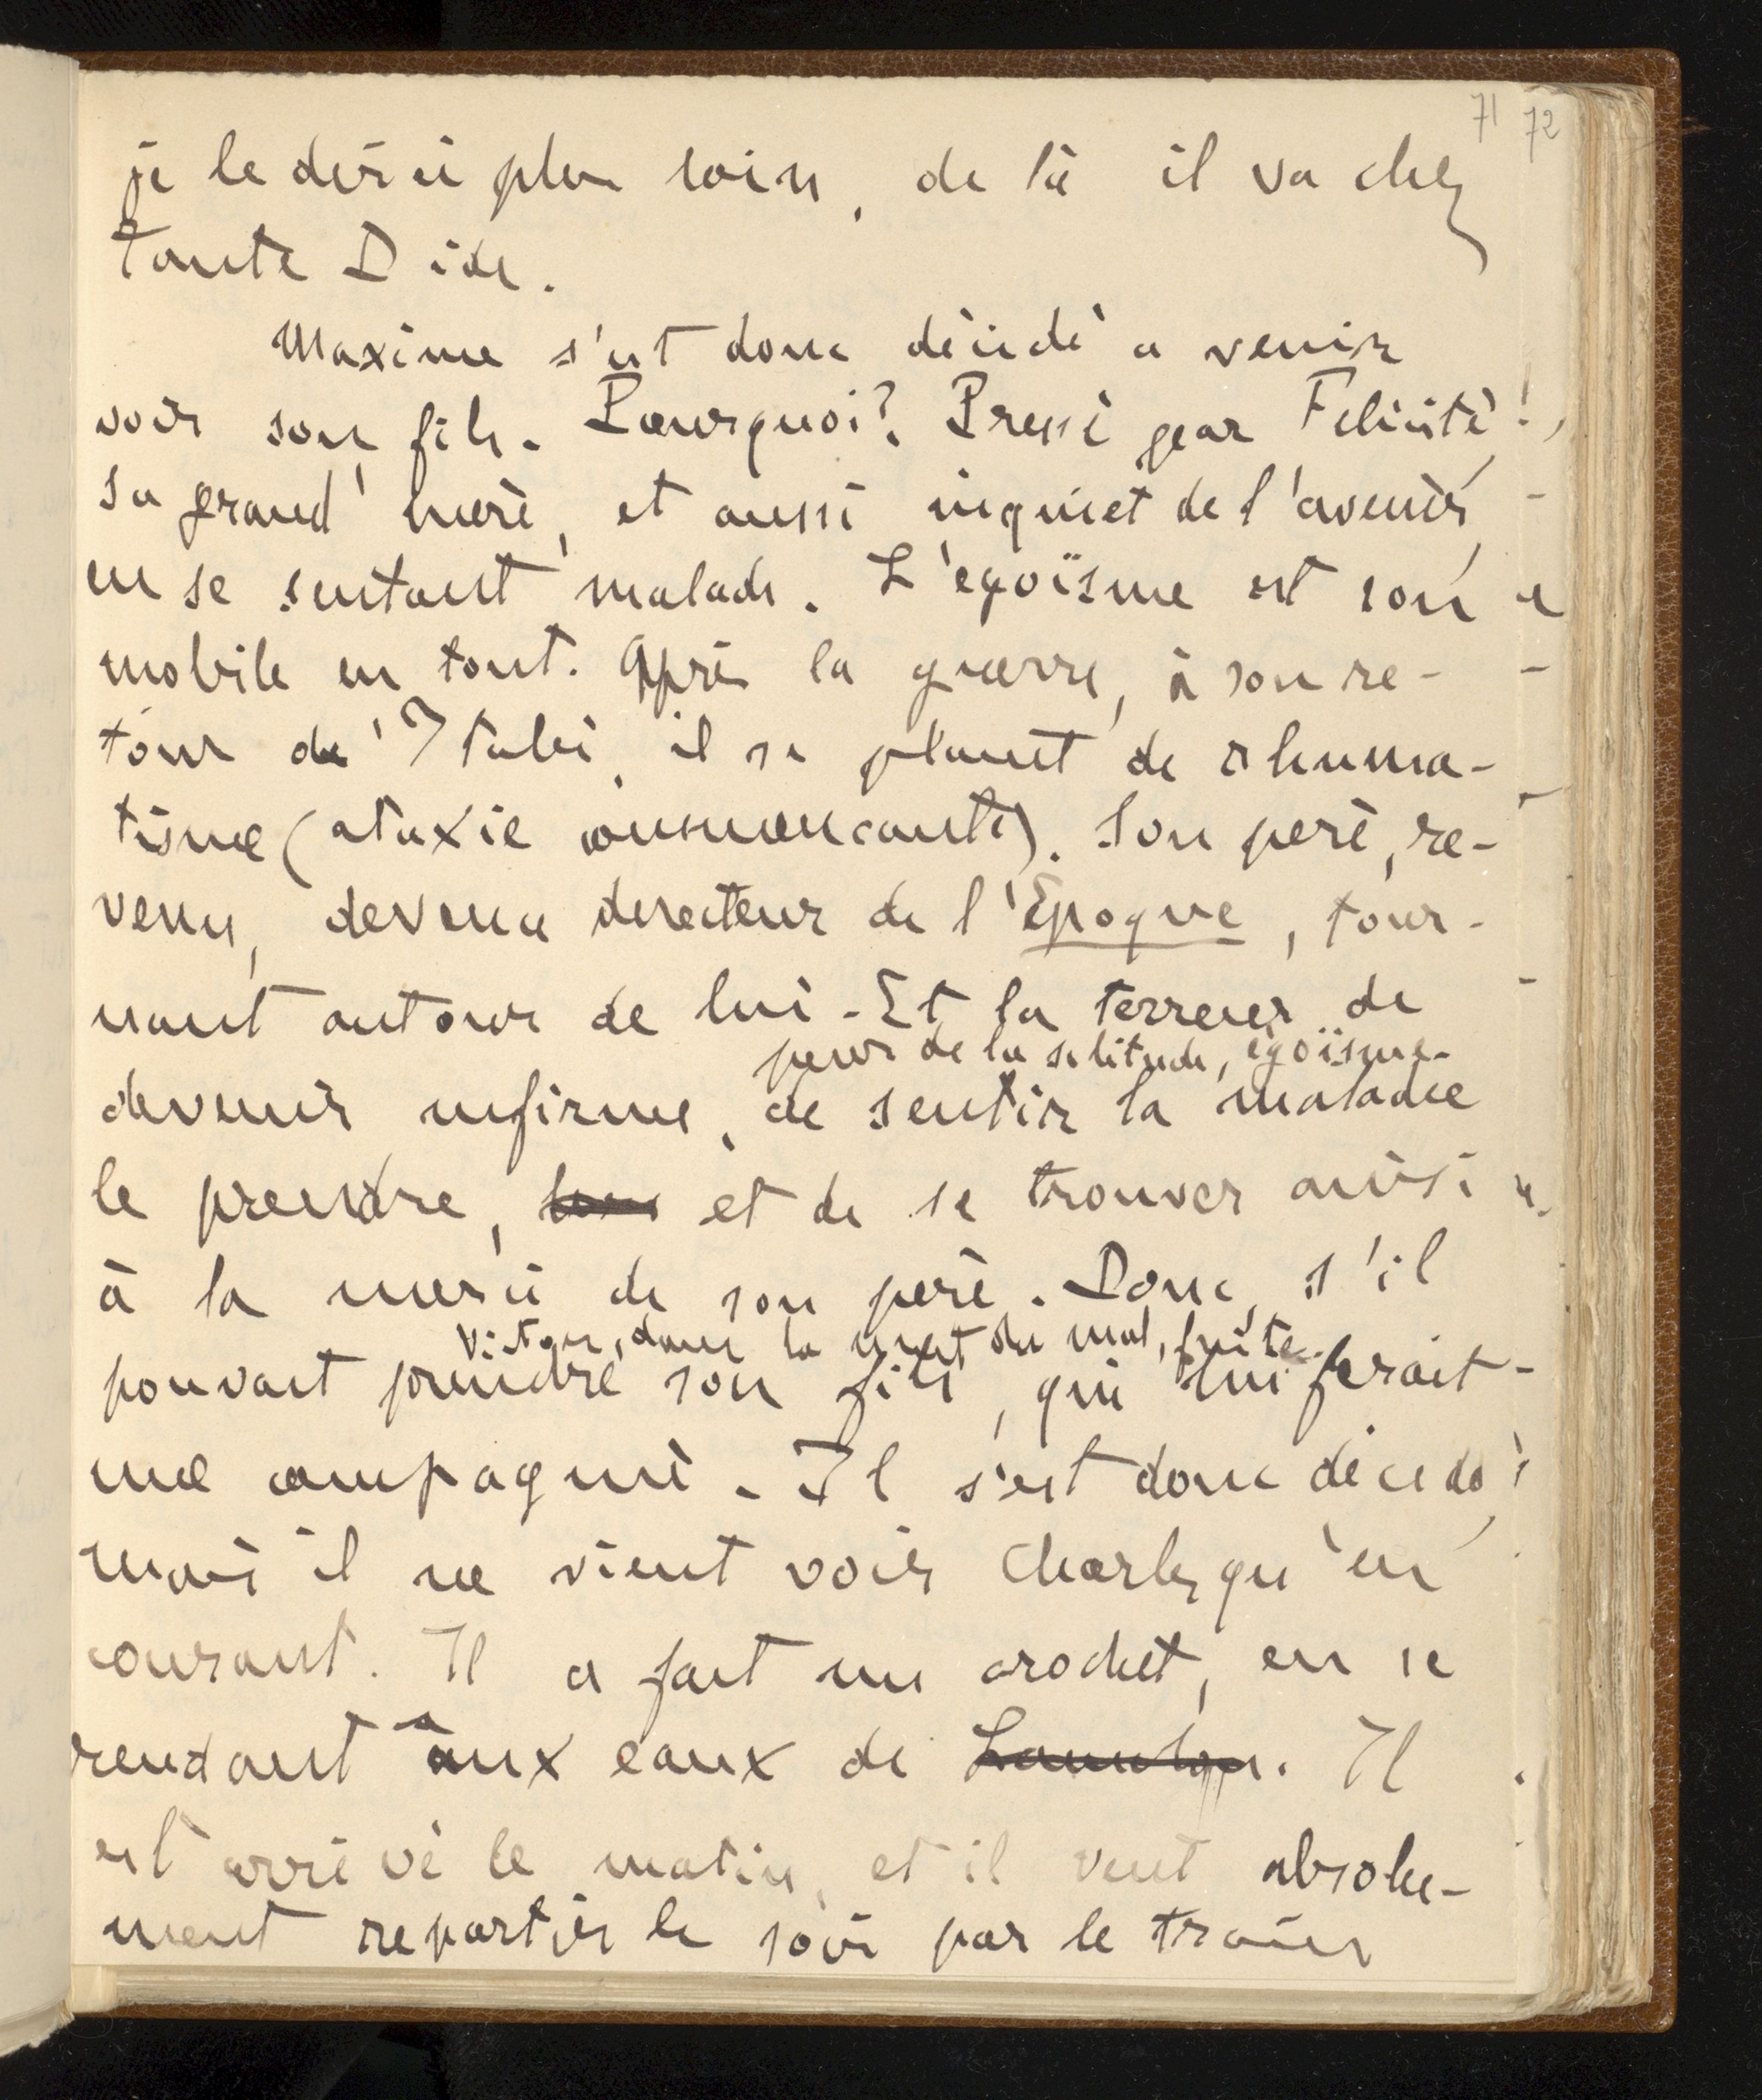 71 72
je le dirai plus loin, de là il va chez
Tante Dide.
Maxime s'est donc décidé à venir
voir son fils. Pourquoi? Pressé par Félicité,
sa grand'mère, et aussi inquiet de l'avenir,
en se sentant malade. L'égoïsme est son
mobile en tout. Après la guerre, à son re-
tour d'Italie, il se plaint de rhuma-
tisme (ataxie commençante). Son père, re-
venu, devenu directeur de l'Époque, tour-
nant autour de lui. Et la terreur de
peur de la solitude, égoïsme.
devenir infirme, de sentir la maladie
le prendre, et de se trouver ainsi
à la merci de son père. Donc, s'il
Victor, dans la nuit du mal, fuite.
pouvait prendre son fils, qui lui ferait
une compagnie. Il s'est donc décidé;
mais il ne vient voir Charles qu'en
courant. Il a fait un crochet, en se
rendant aux eaux de. Il
est arrivé le matin, et il veut absolu-
ment repartir le soir par le train